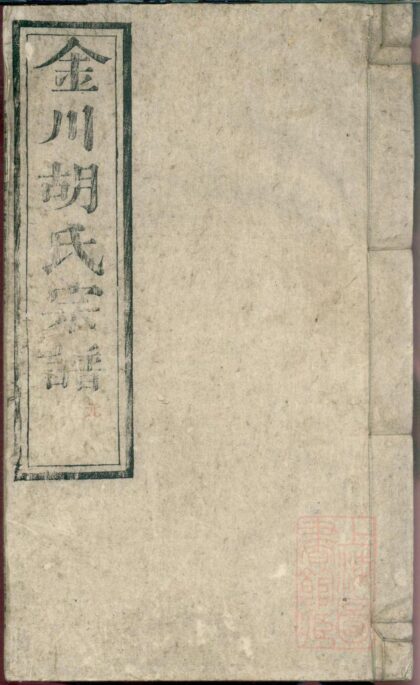 金川胡氏宗譜
上海圖書館藏